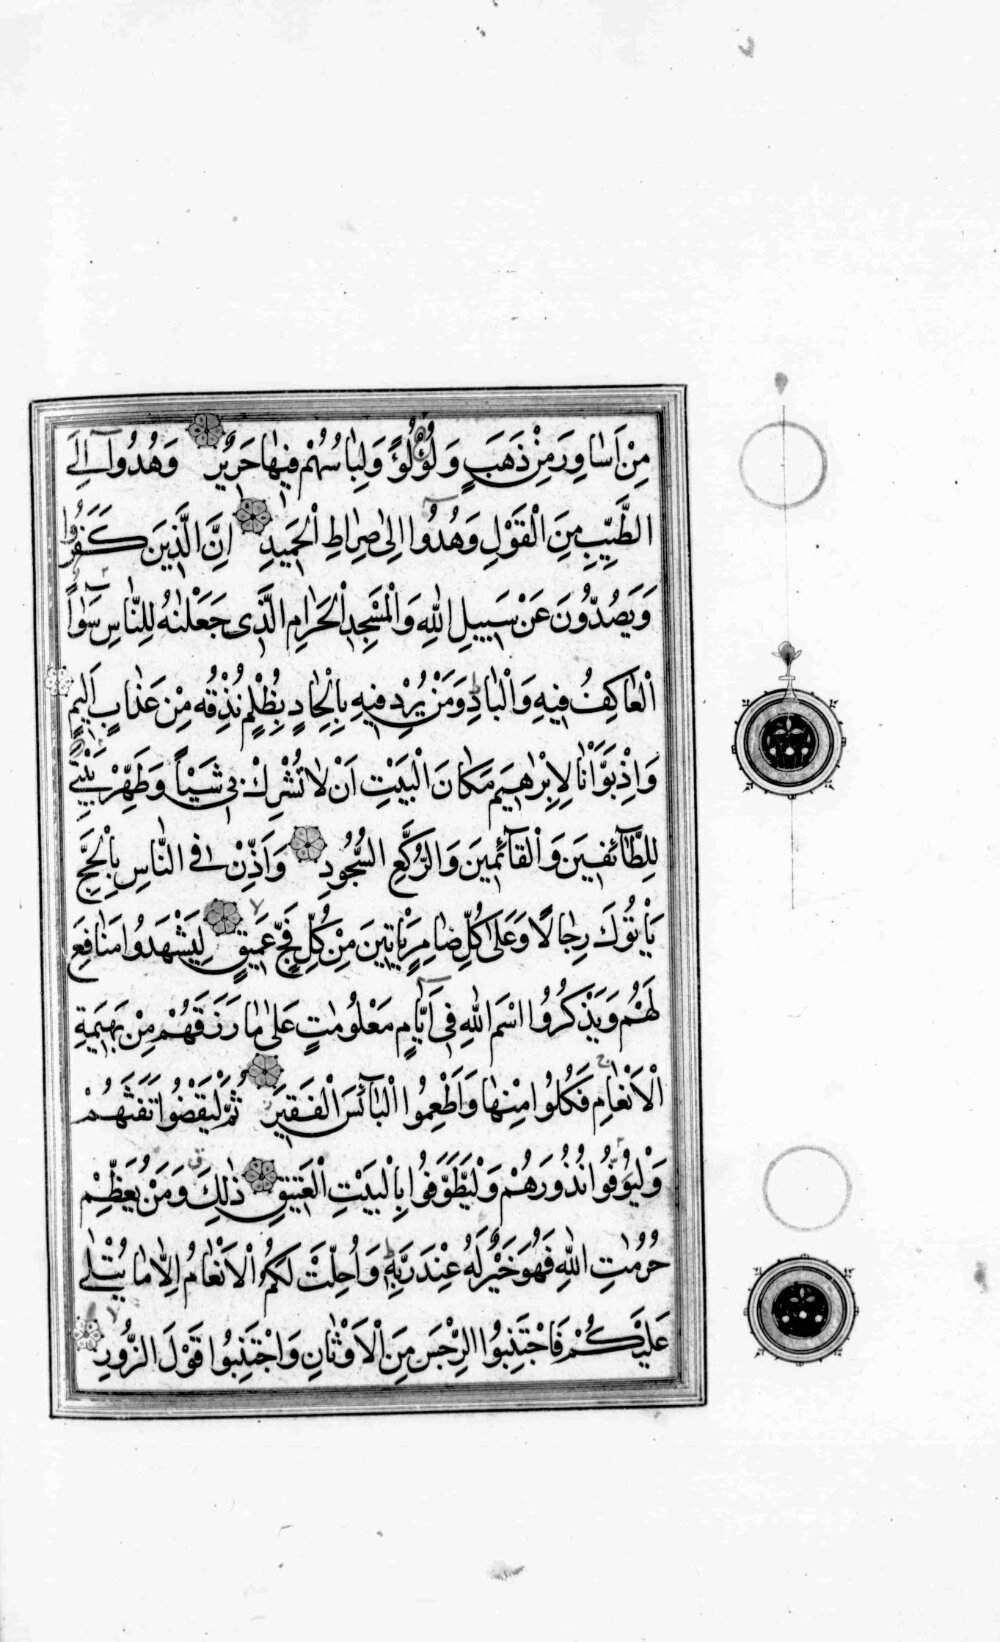 مِنْ اَسَاوِرَ مِنْ ذَهَبٍ وَلُؤْلُؤٍ وَلِبَاسُهُمْ فِيهَا حَرِيرٌ وَهُدُوا اِلَى
الطَّيِّبِ مِنَ الْقَوْلِ وَهُدُوا اِلٰى صِرَاطِ الْحَمِيدِ اِنَّ الَّذِينَ كَفَرُوا
وَيَصُدُّونَ عَنْ سَبِيلِ اللّٰهِ وَالْمَسْجِدِ الْحَرَامِ الَّذِى جَعَلْنٰهُ لِلنَّاسِ سَوَاءً
الْعَاكِفُ فِيهِ وَالْبَادِ وَمَنْ يُرِدْ فِيهِ بِاِلْحَادٍ بِظُلْمٍ نُذِقْهُ مِنْ عَذَابٍ اَلِيمٍ
وَاِذْ بَوَّأْنَا لِاِبْرٰهِيمَ مَكَانَ الْبَيْتِ اَنْ لَا تُشْرِكْ بِى شَيْئًا وَطَهِّرْ بَيْتِىَ
لِلطَّآئِفِينَ وَالْقَآئِمِينَ وَالرُّكَّعِ السُّجُودِ وَاَذِّنْ فِى النَّاسِ بِالْحَجِّ
يَأْتُوكَ رِجَالًا وَعَلٰى كُلِّ ضَامِرٍ يَأْتِينَ مِنْ كُلِّ فَجٍّ عَمِيقٍ لِيَشْهَدُوا مَنَافِعَ
لَهُمْ وَيَذْكُرُوا اسْمَ اللّٰهِ فِى اَيَّامٍ مَعْلُومَاتٍ عَلٰى مَا رَزَقَهُمْ مِنْ بَهِيمَةِ
الْاَنْعَامِ فَكُلُوا مِنْهَا وَاَطْعِمُوا الْبَآئِسَ الْفَقِيرَ ثُمَّ لْيَقْضُوا تَفَثَهُمْ
وَلْيُوفُوا نُذُورَهُمْ وَلْيَطَّوَّفُوا بِالْبَيْتِ الْعَتِيقِ ذٰلِكَ وَمَنْ يُعَظِّمْ
حُرُمَاتِ اللّٰهِ فَهُوَ خَيْرٌ لَهُ عِنْدَ رَبِّهِ وَاُحِلَّتْ لَكُمُ الْاَنْعَامُ اِلَّا مَا يُتْلٰى
عَلَيْكُمْ فَاجْتَنِبُوا الرِّجْسَ مِنَ الْاَوْثَانِ وَاجْتَنِبُوا قَوْلَ الزُّورِ